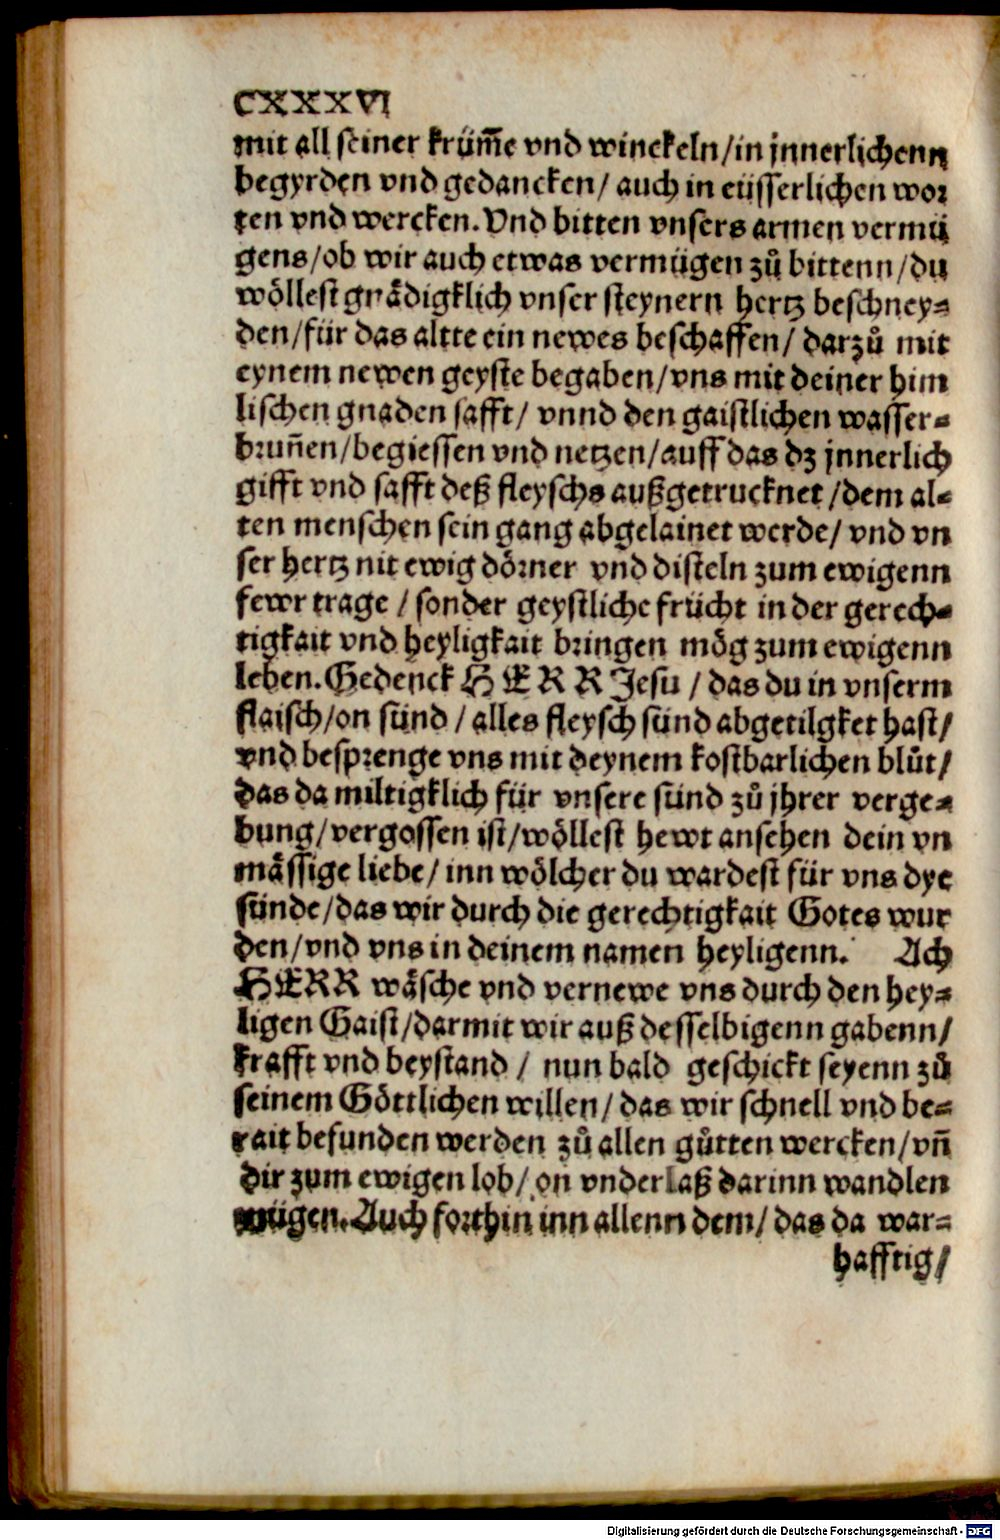 CXXXVI
mit all seiner krüm̄e vnd winckeln/in jnnerlichenn
begyrden vnd gedancken/ auch in eüsserlichen wor
ten vnd wercken. Vnd bitten vnsers armen vermü
gens/ob wir auch etwas vermügen zů bittenn/du
wöllest gnädigklich vnser steynern hertz beschney⸗
den/für das altte ein newes beschaffen/ darzů mit
eynem newen geyste begaben/vns mit deiner him
lischen gnaden safft/ vnnd den gaistlichen wasser⸗
brun̄en/begiessen vnd netzen/auff das dz jnnerlich
gifft vnd safft deß fleyschs außgetrucknet/dem al⸗
ten menschen sein gang abgelainet werde/ vnd vn
ser hertz nit ewig dörner vnd disteln zum ewigenn
fewr trage / sonder geystliche frücht in der gerech⸗
tigkait vnd heyligkait bringen mög zum ewigenn
leben. Gedenck HERR Jesu / das du in vnserm
flaisch/on sünd / alles fleysch sünd abgetilgket hast/
vnd besprenge vns mit deynem kostbarlichen blůt/
das da miltigklich für vnsere sünd zů jhrer verge⸗
bung/vergossen ist/wöllest hewt ansehen dein vn
mässige liebe/ inn wölcher du wardest für vns dye
sünde/das wir durch die gerechtigkait Gotes wur
den/vnd vns in deinem namen heyligenn. Ach
HERR wäsche vnd vernewe vns durch den hey⸗
ligen Gaist/darmit wir auß desselbigenn gabenn/
krafft vnd beystand / nun bald geschickt seyenn zů
seinem Göttlichen willen/ das wir schnell vnd be⸗
rait befunden werden zů allen gůtten wercken/vn̄
dir zum ewigen lob/ on vnderlaß darinn wandlen
mügen. Auch forthin inn allenn dem/ das da war⸗
hafftig/
Digitalisierung gefördert durch die Deutsche Forschungsgemeinschaft - DFG